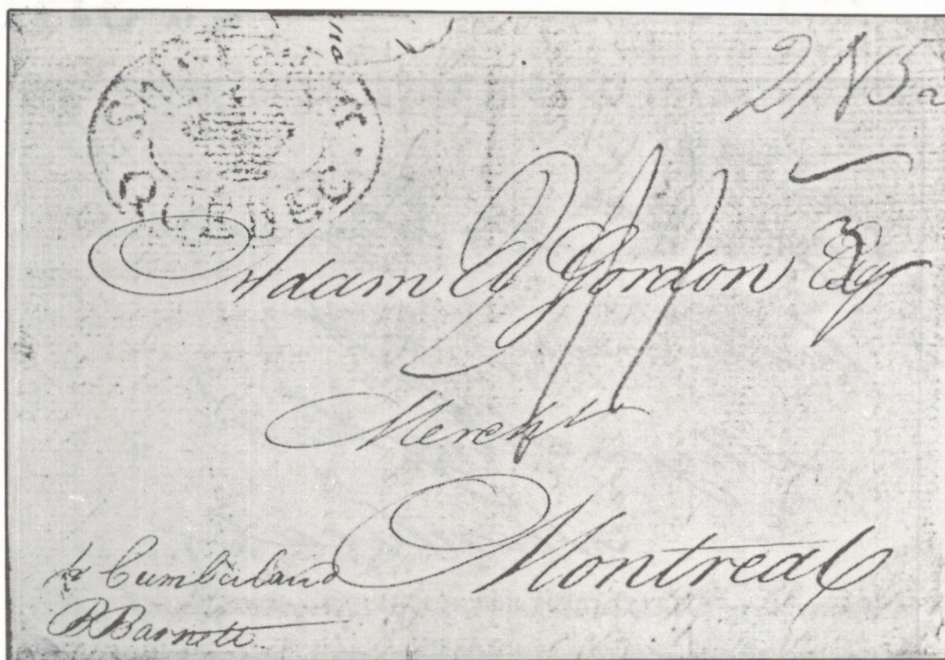 SHIP LETTER
QUEBEC
2N5
Adam Gordon Esq
Mercht
Montreal
pr Cumberland
B Barnett